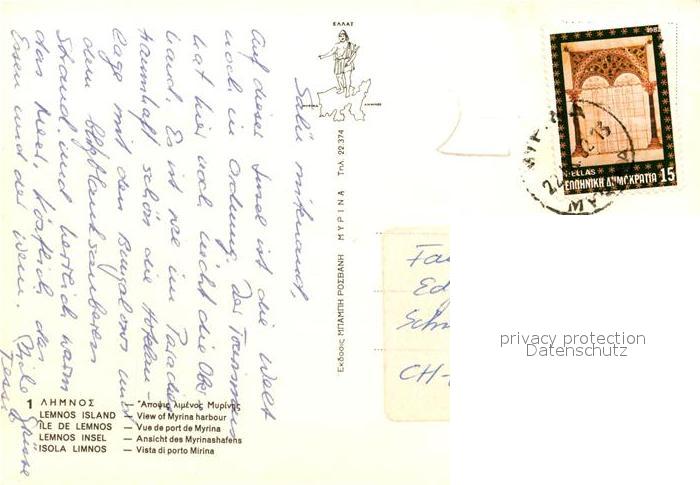 Salü mitenand,
Auf dieser Insel ist die Welt
noch in Ordnung. Der Tourismus
hat hier noch nicht die Ober-
hand. Es ist wie im Paradies
traumhaft schön die Hotelan-
lage mit den Bungalows und
dem blitzblanksauberen
Strand. und herrlich warm
das Meer, köstlich das
Essen und der Wein.
Grüsse
ΕΛΛΑΣ
Έκδοσις ΜΠΑΜΠΗ ΡΟΣΒΑΝΗ ΜΥΡΙΝΑ Τηλ. 22.374
1 ΛΗΜΝΟΣ — Ἄποψις λιμένος Μυρίνης
LEMNOS ISLAND — View of Myrina harbour
ÎLE DE LEMNOS — Vue de port de Myrina
LEMNOS INSEL — Ansicht des Myrinashafens
ISOLA LIMNOS — Vista di porto Mirina
HELLAS
ΕΛΛΗΝΙΚΗ ΔΗΜΟΚΡΑΤΙΑ 15
CH-
privacy protection
Datenschutz